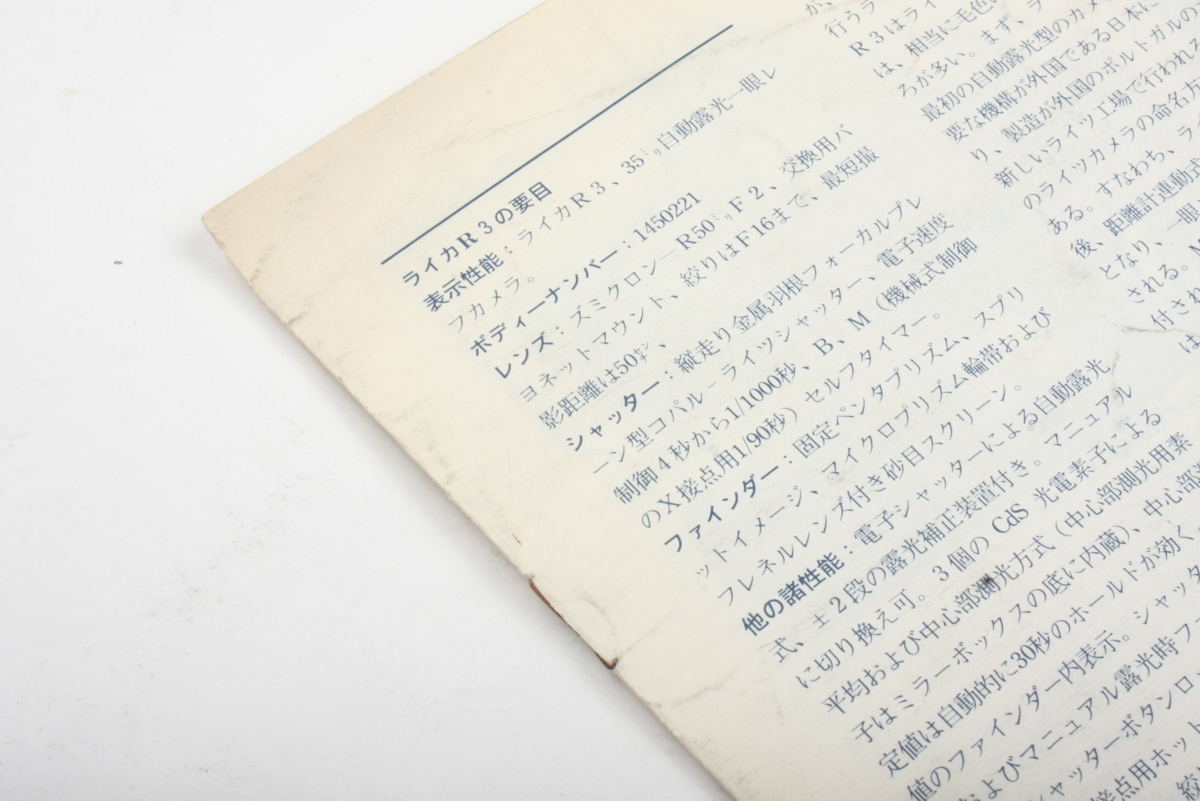 ライカR3の要目
表示性能：ライカR3、35ミリ自動露光一眼レ
フカメラ。
ボディーナンバー：1450221
レンズ：ズミクロン—R50ミリF2、交換用バ
ヨネットマウント、絞りはF16まで、最短撮
影距離は50センチ、
シャッター：縦走り金属羽根フォーカルプレ
ーン型コパル－ライツシャッター、電子速度
制御4秒から1/1000秒、B、M（機械式制御
のX接点用1/90秒）セルフタイマー。
ファインダー：固定ペンタプリズム、スプリ
ットイメージ、マイクロプリズム輪帯および
フレネルレンズ付き砂目スクリーン。
他の諸性能：電子シャッターによる自動露光
式、±2段の露光補正装置付き。マニュアル
に切り換え可。3個の CdS 光電素子による
平均および中心部測光方式（中心部測光用素
子はミラーボックスの底に内蔵）、中心部
定値は自動的に30秒のホールドが効く
値のファインダー内表示。シャッ
およびマニュアル露光時フ
シャッターボタンロ
接点用ホット
が、
行うラ
R3はライ
は、相当に毛色
ろが多い。まず、ラ
最初の自動露光型のカメラ
要な機構が外国である日本に
り、製造が外国のポルトガルの
新しいライツ工場で行われる
のライツカメラの命名方
ある。すなわち、ラ
後、距離計連動式
となり、一眼
される。
付され
は